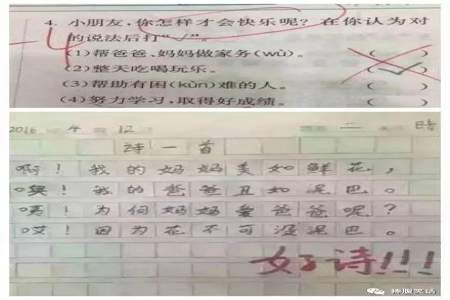 4. 小朋友，你怎样才会快乐呢？在你认为对
的说法后打“√”。
(1)帮爸爸、妈妈做家务(wù)。 (  )
(2)整天吃喝玩乐。 (✓)
(3)帮助有困(kùn)难的人。 (  )
(4)努力学习，取得好成绩。 (  )
2016 年 12 二 晴
诗一首
啊！我的妈妈美如鲜花，
噢！我的爸爸丑如泥巴。
咦！为何妈妈爱爸爸呢？
哎！因为花不可没泥巴。
好诗!!!
捧腹笑话